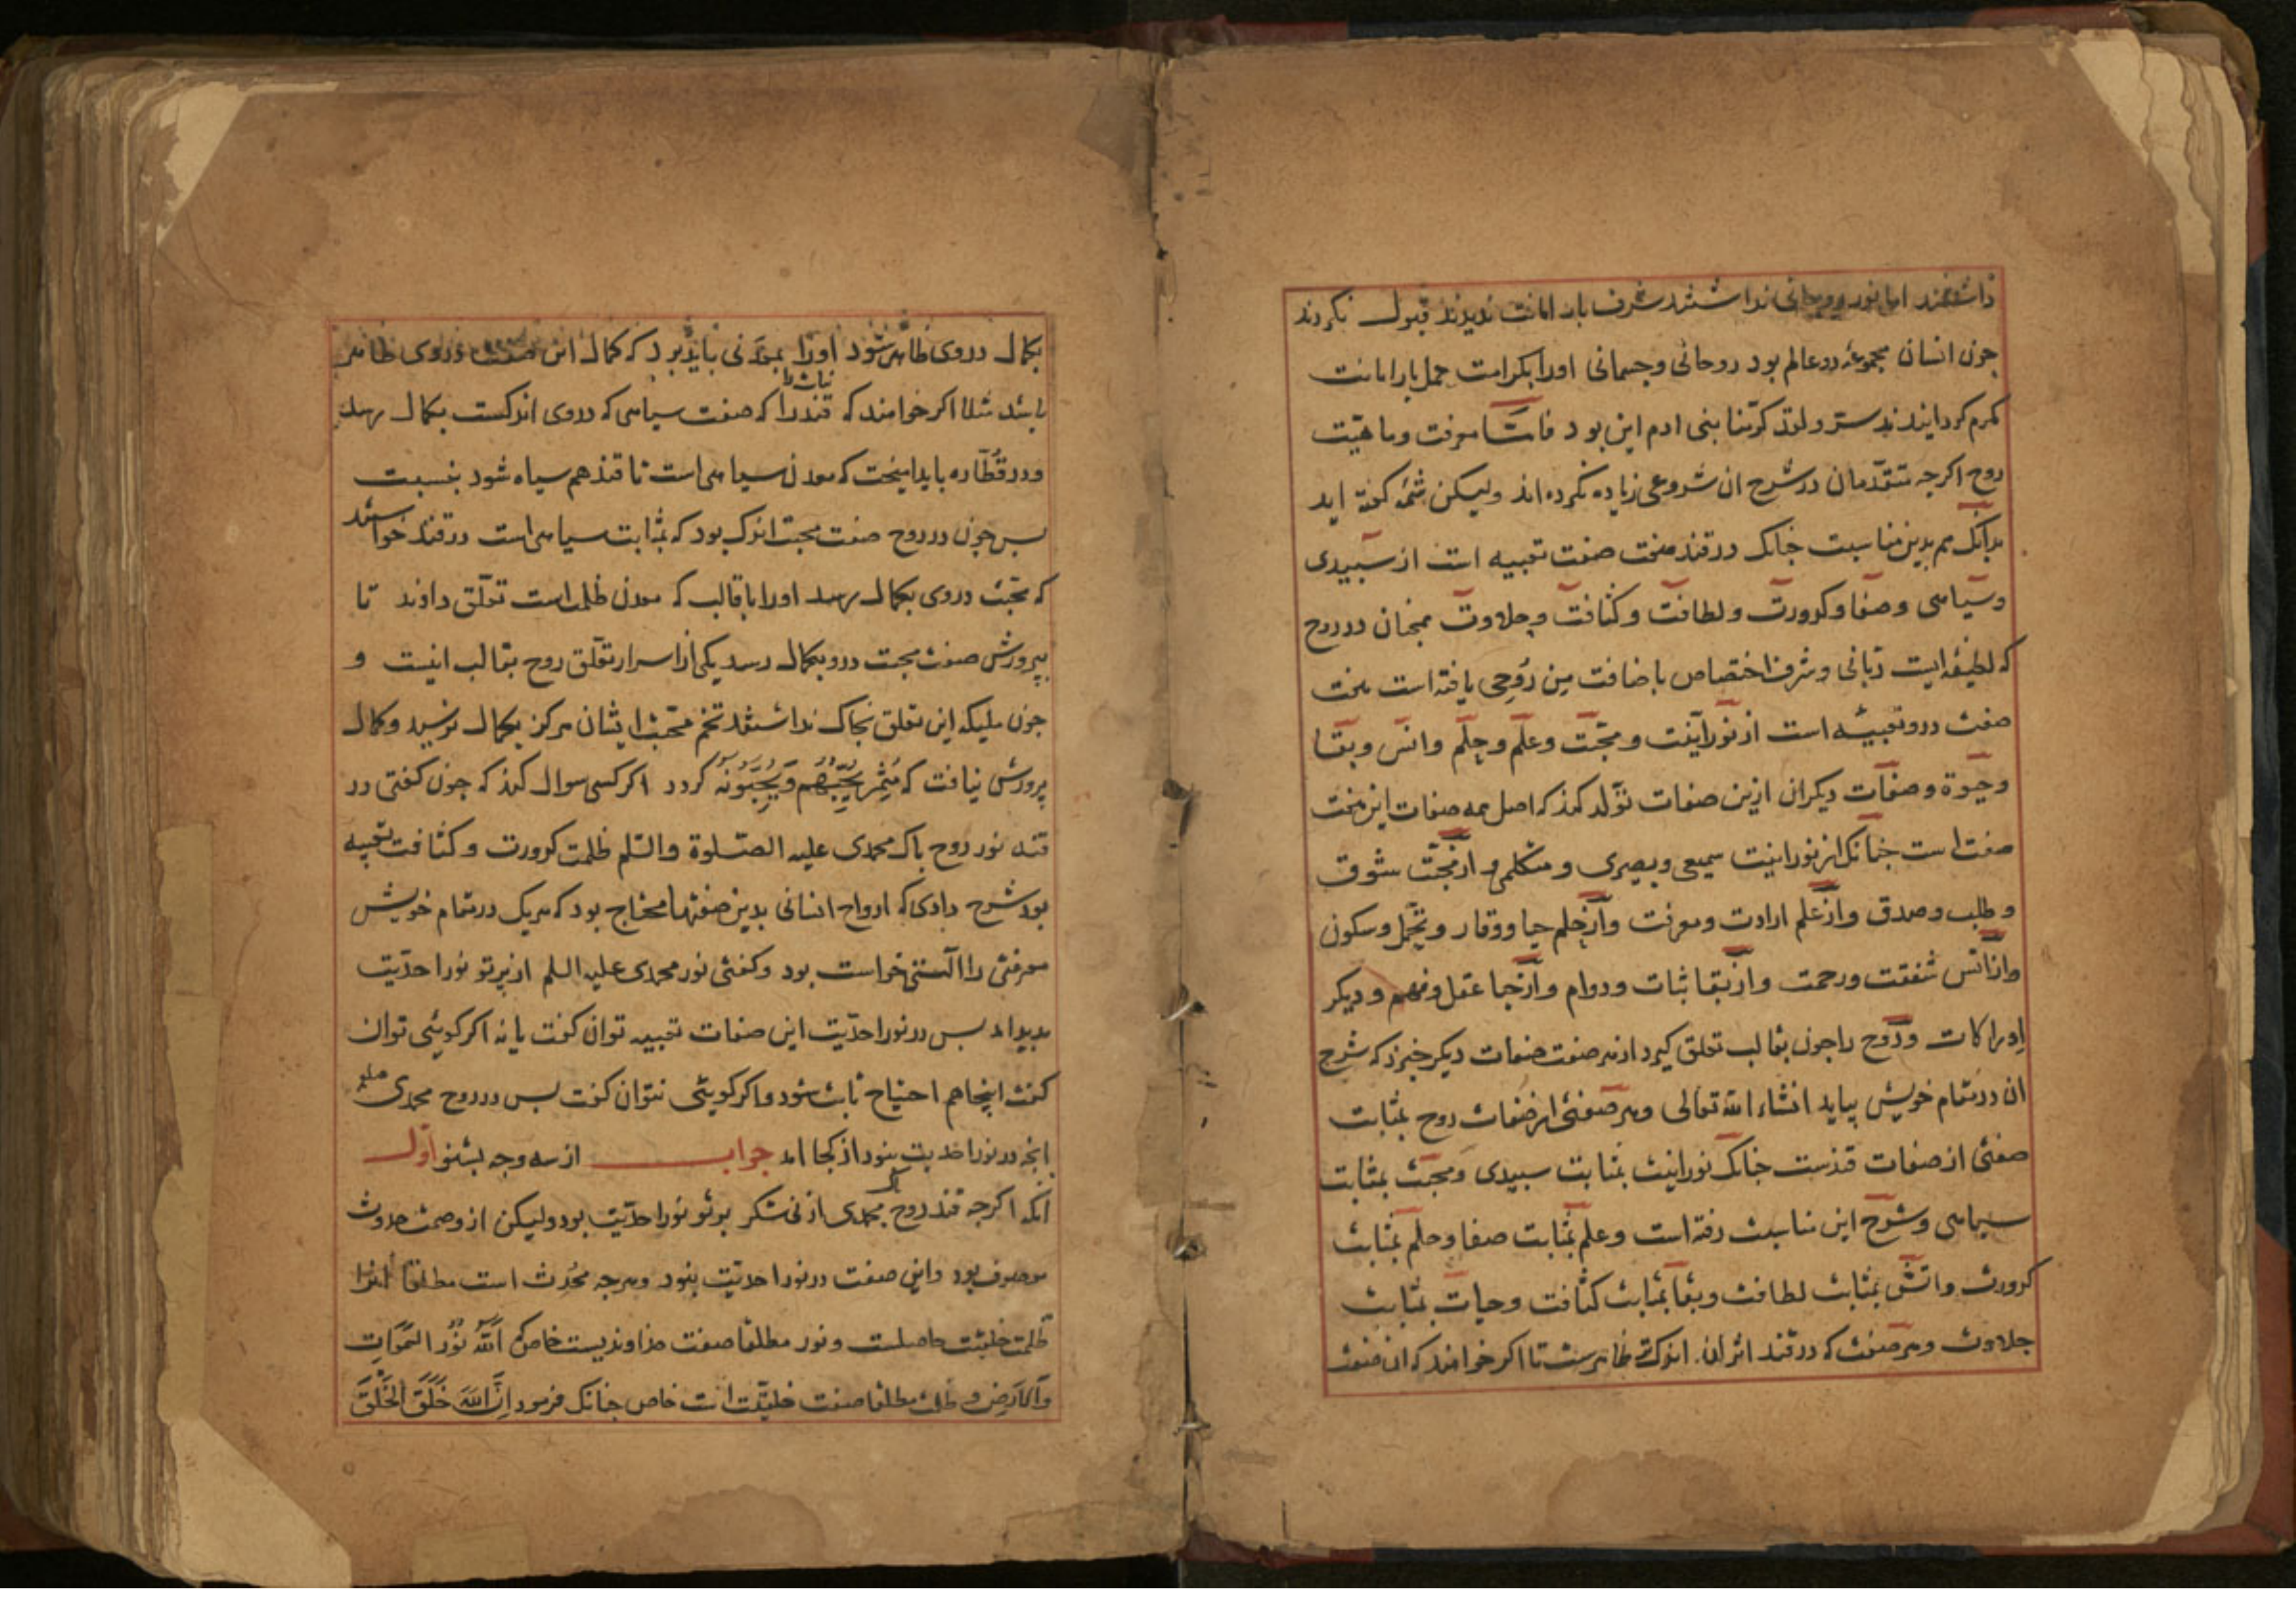 داشتند اما نور روحانی نداشتند شرف بار امانت ندیدند قبول نکردند
جون انسان مجموعه دو عالم بود روحانی وجسمانی اورا بکرامت حمل بار امانت
مکرم کردانیدند سر ولقد کرّمنا بنی ادم این بود فامّا معرفت وماهیّت
روح اکرجه متقدّمان در شرح ان شروعی زیاده نکرده اند ولیکن شمّه کفته اید
بدانک هم بدین مناسبت جنانک در قند هفت صفت تعبیه است از سبیدی
وسیاهی وصفا وکدورت ولطافت وکثافت وحلاوت همجنان در روح
که لطیفه ایست ربّانی وشرف اختصاص باضافت مِن رُوحِی یافته است هفت
صفت درو تعبیه است از نورانیت ومحبّت وعلم وحِلم وانس وبقا
وحیوة وصفات دیکر ان ازین صفات تولّد کند که اصل همه صفات این هفت
صفت است جنانک از نورانیت سمیعی وبصیری ومتکلمی واز محبّت شوق
وطلب وصدق واز علم ارادت ومعرفت واز حِلم حیا ووقار وتحمّل وسکون
واز انس شفقت ورحمت واز بقا ثبات ودوام واز حیا عقل وفهم ودیکر
اِدراکات وروح را جون بقالب تعلق کیرد از هر صفت صفات دیکر خیزد که شرح
ان در مقام خویش بیاید انشاء الله تعالی وهر صفتی از صفات روح بمثابت
صفتی از صفات قندست جنانک نورانیت بمثابت سبیدی ومحبّت بمثابت
سیاهی وشرح این مناسبت رفته است وعلم بمثابت صفا وحلم بمثابت
کدورت وانس بمثابت لطافت وبقا بمثابت کثافت وحیات بمثابت
حلاوت وهر صفت که در قند اثر ان اندک تر ظاهرست تا اکر خواهند که ان صفت
بکمال دروی ظاهر شود اورا بمعدنی باید برد که کمال این صفت دروی ظاهر
باشد مثلا اکر خواهند که نبات را قند را که صفت سیاهی که دروی اندکست بکمال رسد
ودر قطّاره باید امیخت که معدن سیاهی است تا قند هم سیاه شود بنسبت
بس جون در روح صفت محبت اندک بود که بمثابت سیاهی است در قند خواستند
که محبّت دروی بکمال رسد اورا با قالب که معدن ظلمت است تعلّق دادند تا
بپرورش صفت محبت درو بکمال رسد یکی از اسرار تعلّق روح بقالب اینست و
جون ملیکه این تعلق بخاک نداشتند تخم محبّت ایشان هرکز بکمال نرسید وکمال
پرورش نیافت که مُثمِر یُحِبُّهُم وَیُحِبُّونَهُ کردد اکر کسی سوال کند که جون کفتی در
قند نور روح باک محمدی علیه الصّلوة والسّلم ظلمت کدورت وکثافت تعبیه
بود شرح دادی که ارواح انسانی بدین صفتها محتاج بود که هریک در مقام خویش
معرفتی را التستی خواست بود وکفتی نور محمدی علیه السلم از پرتو نور احدّیت
بدید امد بس در نور احدّیت این صفات تعبیه توان کفت یا نه اکر کویئی توان
کفت اینجا هم احتیاج ثابت شود واکر کویئی نتوان کفت بس در روح محمدی صلعم
انجه در نور احدیت نبود از کجا امد جواب از سه وجه بشنو اول
انکه اکرجه قند روح باک محمدی از نی شکر پرتو نور احدّیت بود ولیکن از وصمت حدوث
موصوف بود واین صفت در نور احدیّت نبود وهرجه مُحدَث است مطلقا انرا
ظلمت خلقیت حاصلست ونور مطلقا صفت خداوندیست خاص که اَللّٰهُ نُورُ السَّمٰوَاتِ
وَالاَرضِ وظلمت مطلقا صفت خلقیّت است خاص جنانک فرمود اِنَّ اللّٰهَ خَلَقَ الخَلْقَ